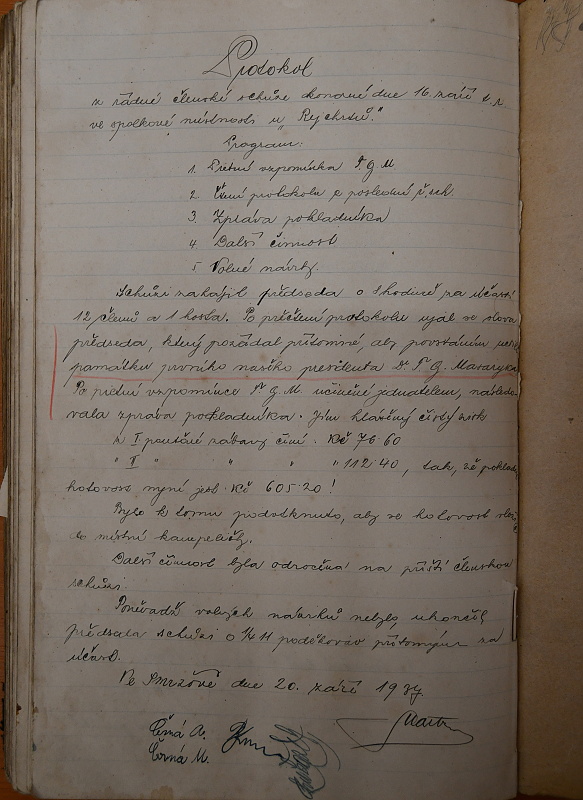 Protokol
z řádné členské schůze konané dne 16. září t. r.
ve spolkové místnosti u „Rychtrů."
Program:
1. Pietní vzpomínka T. G. M
2. Čtení protokolu z poslední čl. sch.
3 Zpráva pokladníka
4 Další činnost
5 Volné návrhy.
Schůzi zahájil předseda o 8 hodině za účasti
12 členů a 1 hosta. Po přečtení protokolu ujal se slova
předseda, který požádal přítomné, aby povstáním uctili
památku prvního našeho presidenta Dr T. G. Masaryka
Po pietní vzpomínce T. G. M. učiněné jednatelem, následo-
vala zpráva pokladníka. Jím hlášený čistý zisk
z I pouťové zábavy činí. Kč 76.60
" II " " " " 112.40, tak, že pokladní
hotovost nyní jest Kč 605.20!
Bylo k tomu podotknuto, aby se hotovost
do místní kampeličky.
Další činnost byla odročena na příští členskou
schůzi.
Poněvadž volných návrhů nebylo ukončil
předseda schůzi o ¼ 11 poděkovav přítomným za
účast.
Ve Smržově dne 20. září 1937
Černá A.
Černá M.